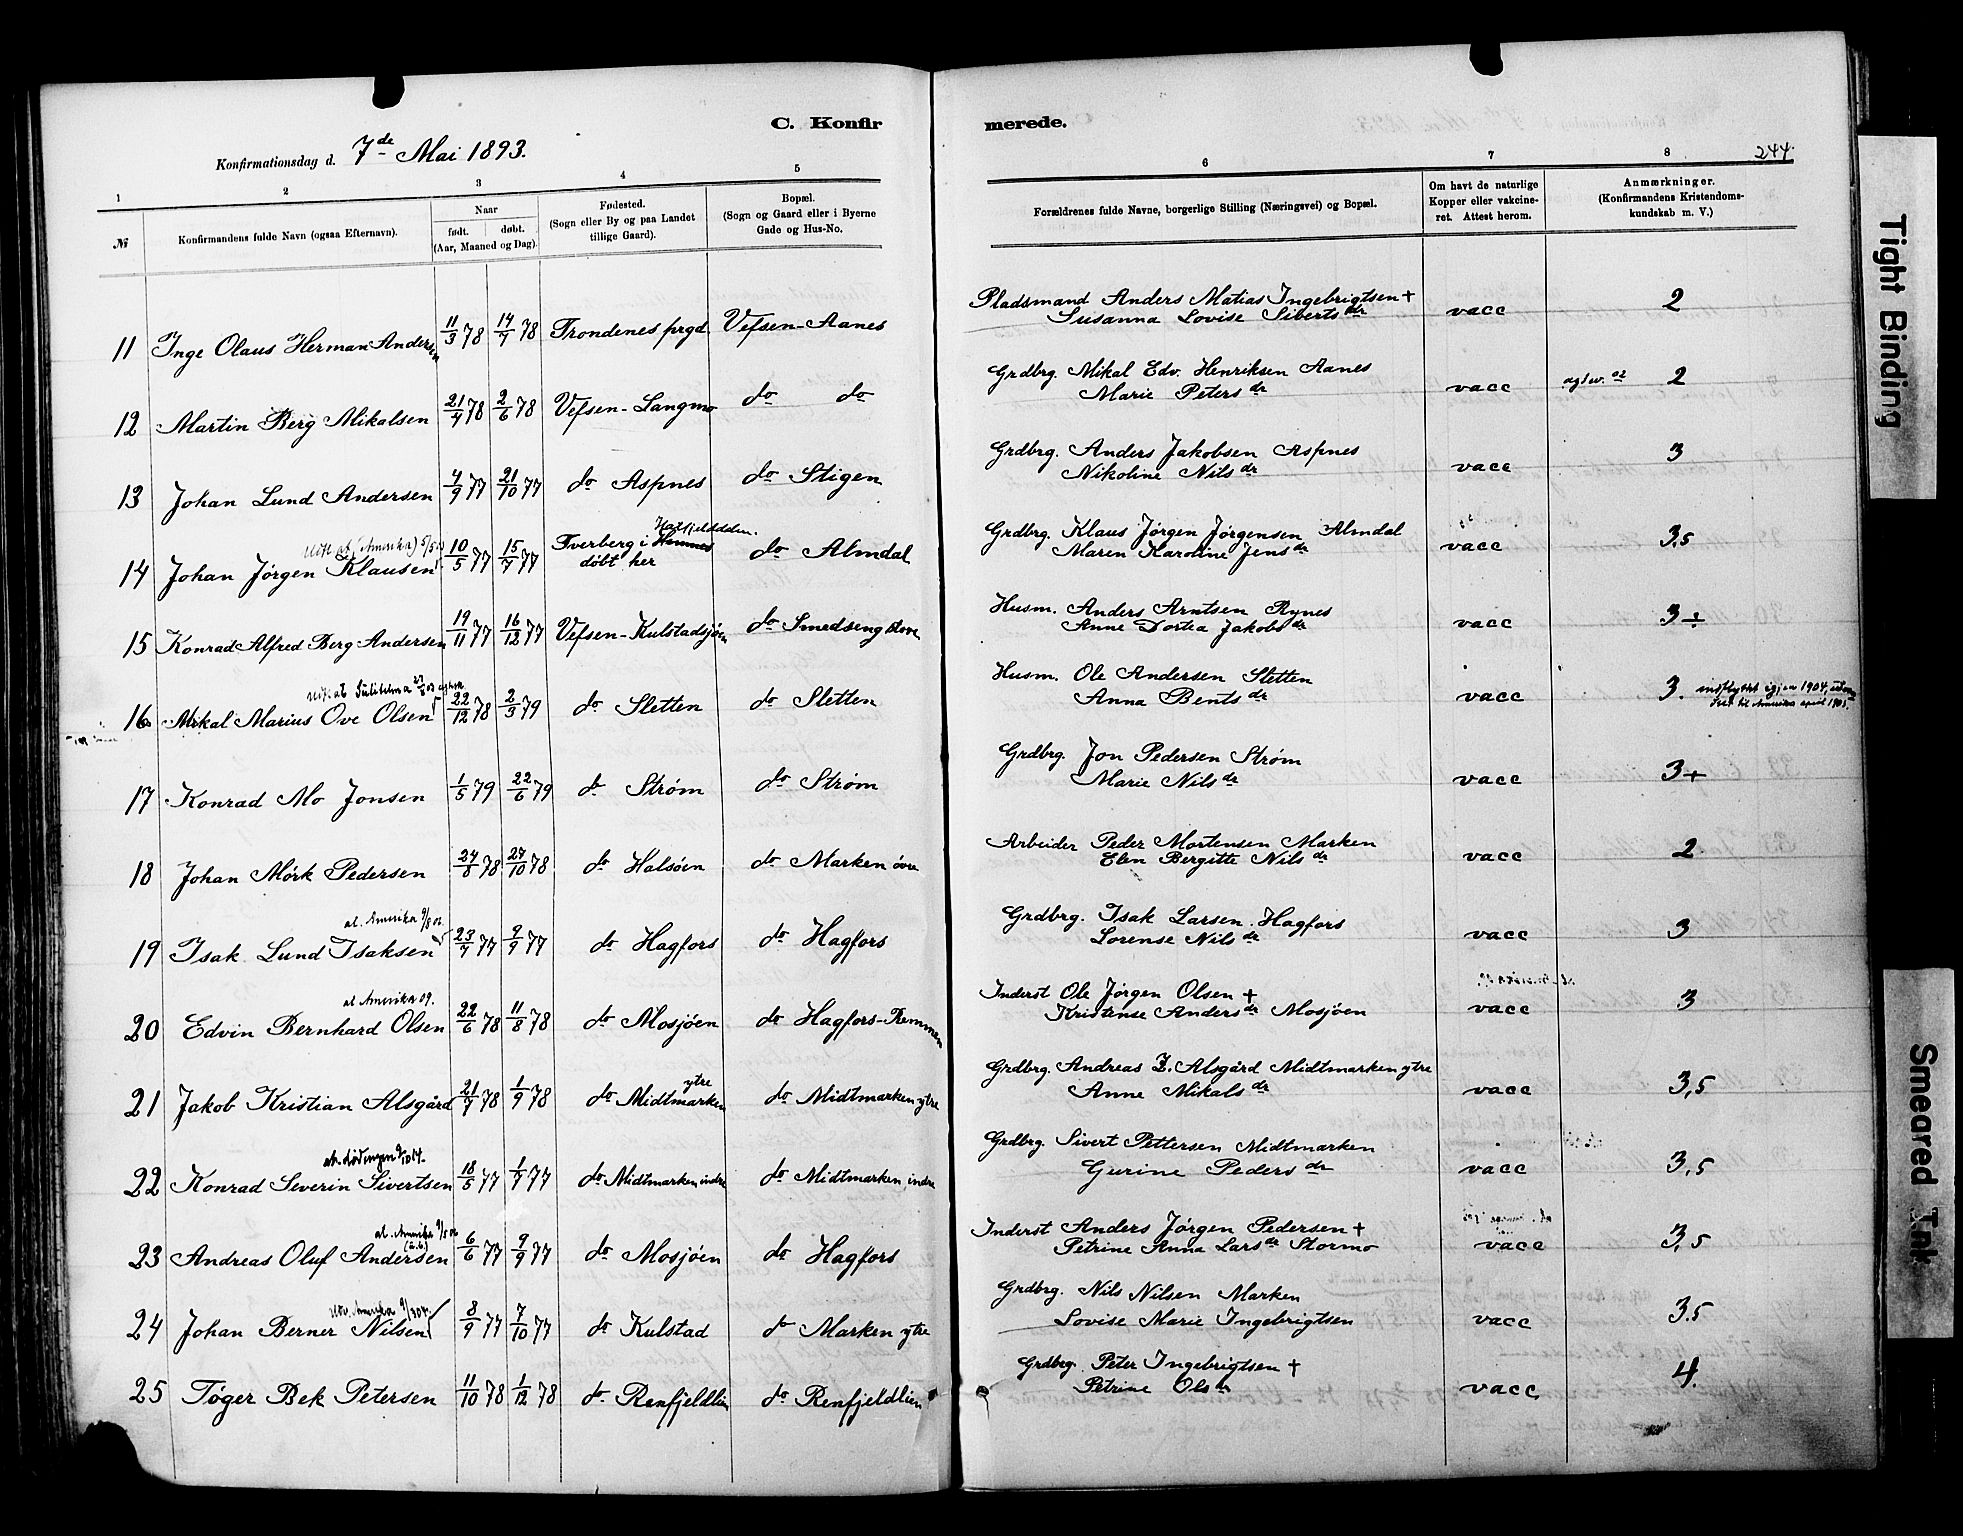 C. Konfir
merede.
Konfirmationsdag d. 7de Mai 1893.
244.
1 2 3 4 5 6 7 8
№
Konfirmandens fulde Navn (ogsaa Efternavn).
Naar
født. døbt.
(Aar, Maaned og Dag).
Fødested.
(Sogn eller By og paa Landet
tillige Gaard).
Bopæl.
(Sogn og Gaard eller i Byerne
Gade og Hus-No.
Forældrenes fulde Navne, borgerlige Stilling (Næringsvei) og Bopæl.
Om havt de naturlige
Kopper eller vakcine-
ret. Attest herom.
Anmærkninger.
(Konfirmandens Kristendoms-
kundskab m. V.)
11 Inge Olaus Herman Andersen 11/3 78 14/7 78 Trondenes prgd. Vefsen-Aanes Pladsmand Anders Matias Ingebrigtsen + vacc 2
Susanna Lovise Siberts dr
12 Martin Berg Mikalsen 21/4 78 2/6 78 Vefsen-Langmo do do Grdbrg. Mikal Edv. Henriksen Aanes vacc 2
Marie Peters dr
13 Johan Lund Andersen 4/9 77 21/10 77 do Aspnes do Stigen Grdbrg. Anders Jakobsen Aspnes vacc 3
Nikoline Nils dr
(Amerika)
14 Johan Jørgen Klausen 10/5 77 15/7 77 Tverberg i Hemnes Hatfjelddalen. do Almdal Grdbrg. Klaus Jørgen Jørgensen Almdal vacc 3,5
døbt her
Maren Karoline Jens dr
15 Konrad Alfred Berg Andersen 19/11 77 16/12 77 Vefsen-Kulstadsjøen do Smedseng Husm. Anders Arntsen Rynes vacc 3÷
Anne Dortea Jakobs dr
Sulitelma
16 Mikal Marius Ove Olsen 22/12 78 2/3 79 do Sletten do Sletten Husm. Ole Andersen Sletten vacc 3. indflyttet igjen 1904,
til Amerika april 1905.
Anna Bents dr
17 Konrad Mo Jonsen 1/5 79 22/6 79 do Strøm do Strøm Grdbrg. Jon Pedersen Strøm vacc 3+
Marie Nils dr
18 Johan Mørk Pedersen 24/8 78 27/10 78 do Halsøen do Marken övre Arbeider Peder Mortensen Marken vacc 2
Elen Bergitte Nils dr
at. Amerika
19 Isak Lund Isaksen 23/7 77 9/9 77 do Hagfors do Hagfors Grdbrg. Isak Larsen Hagfors vacc 3
Lorense Nils dr
at Amerika 09.
20 Edvin Bernhard Olsen 22/6 78 11/8 78 do Mosjøen do Hagfors-Remmen Inderst Ole Jørgen Olsen + vacc 3
Kristense Anders dr Mosjøen
21 Jakob Kristian Alsgård 21/7 78 1/9 78 do Midtmarken ytre do Midtmarken ytre Grdbrg. Andreas Z. Alsgård Midtmarken ytre vacc 3,5
Anne Mikals dr
22 Konrad Severin Sivertsen 18/5 77 1/7 77 do Midtmarken indre do Midtmarken indre Grdbrg. Sivert Pettersen Midtmarken vacc 3,5
Gurine Peders dr
at. Amerika
23 Andreas Oluf Andersen 6/6 77 9/9 77 do Mosjøen do Hagfors Inderst Anders Jørgen Pedersen + vacc 3,5
Petrine Anna Lars dr Stormo
Amerika
24 Johan Berner Nilsen 8/9 77 7/10 77 do Kulstad do Marken ytre Grdbrg. Nils Nilsen Marken vacc 3.5
Lovise Marie Ingebrigtsen
25 Tøger Bek Petersen 11/10 78 1/12 78 do Renfjeldlien do Renfjeldlien Grdbrg. Peter Ingebrigtsen + vacc 4.
Petrine Ols dr
Tight Binding
Smeared Ink